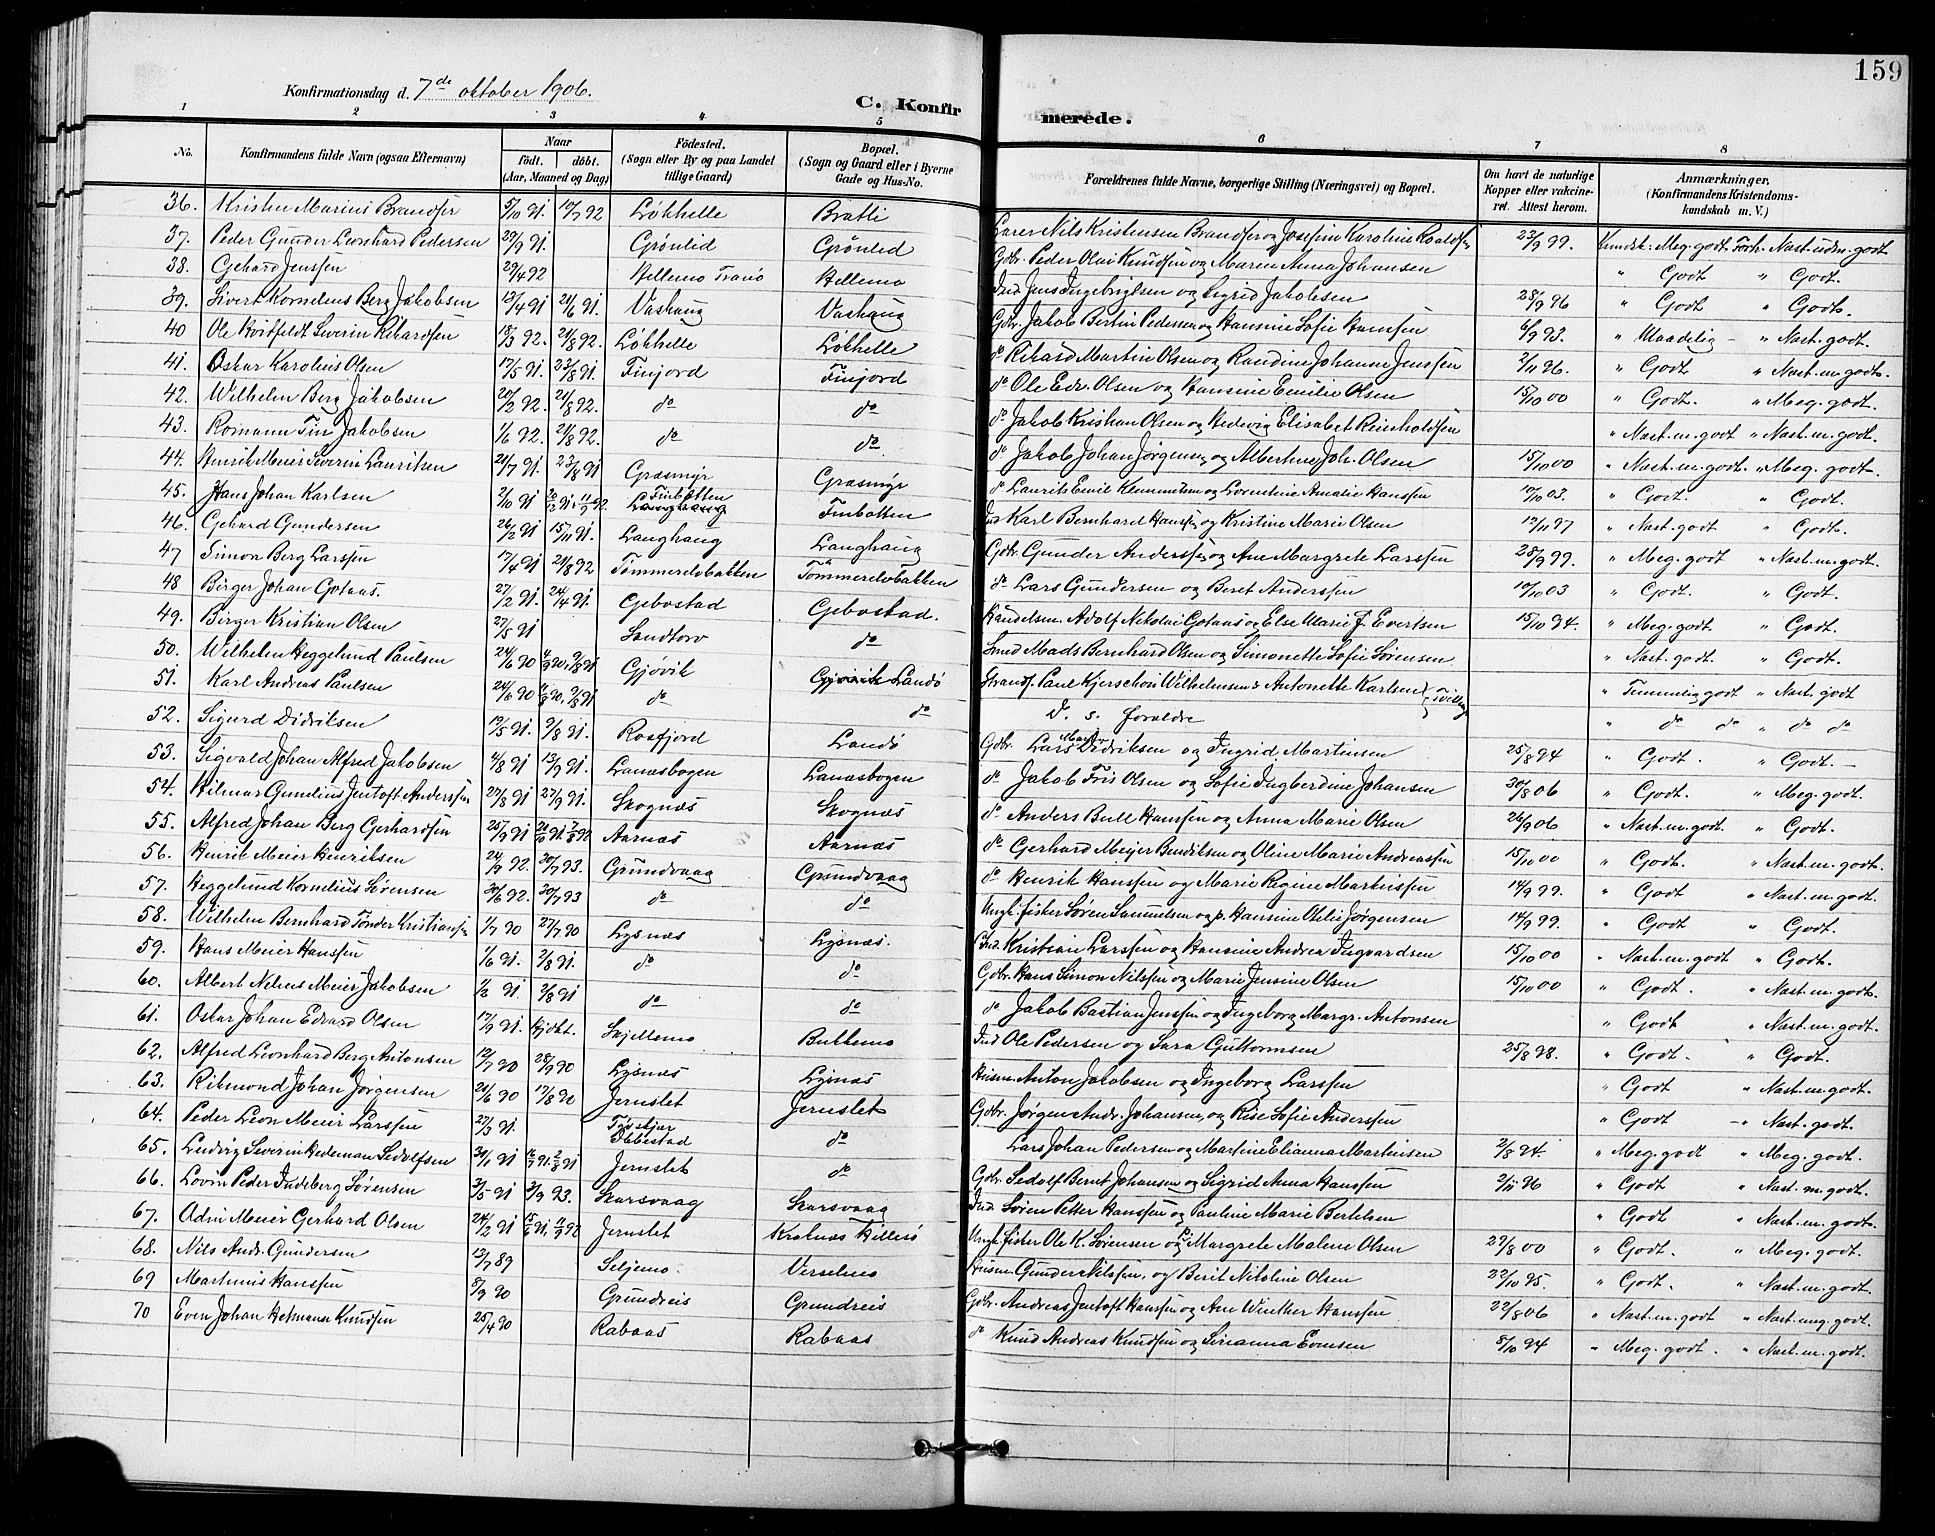 159
Konfirmationsdag d. 7de oktober 1906.
C. Konfirmerede.
1 2 3 4 5 6 7 8
No.
Konfirmandens fulde Navn (ogsaa Efternavn)
Naar
födt. döbt.
(Aar, Maaned og Dag)
Födested.
(Sogn eller By og paa Landet
tillige Gaard)
Bopæl.
(Sogn og Gaard eller i Byerne
Gade og Hus-No.
Forældrenes fulde Navne, borgerlige Stilling (Næringsvei) og Bopæl.
Om havt de naturlige
Kopper eller vakcine-
ret. Attest herom.
Anmærkninger,
(Konfirmandens Kristendoms-
kundskab m. V.)
36. Kristen Marius Brandser 5/10 91. 10/7 92 Løkhelle Bratli Lærer Nils Kristensen Brandser og Josefine Karoline Roaldsen 23/9 99. Kundsk. Meg. godt. Forh. Nast. udm. godt
37. Peder Gunder Leonhard Pedersen 29/9 91. Grönlid Grönlid Gdbr. Peder Olai Knudsen og Maren Anna Johansen " Godt " Godt.
38. Gehard Jenssen 29/4 92 Hellemo Tranö Hellemo Ind Jens Ingebrigtsen og Sigrid Jakobsen 28/9 96 " Godt " Godt.
39. Sivert Kornelius Berg Jakobsen 13/4 91 21/6 91. Vashaug Vashaug Gdbr. Jakob Bertin Pedersen og Hansine Sofie Hanssen 6/9 93. " Maadelig - " Nast. godt.
40 Ole Hvitfeldt Severin Rikardsen 18/3 92. 21/8 92. Løkhelle Løkhelle do Rikard Martin Olsen og Randine Johanne Jenssen 2/11 96. " Godt " Nast. m. godt.
41. Oskar Karolius Olsen 17/5 91. 23/8 91. Finjord Finjord do Ole Edv. Olsen og Hansine Emilie Olsen 15/10 00 " Godt. " Meg. godt.
42. Wilhelm Berg Jakobsen 20/2 92. 21/8 92. do do do Jakob Kristian Olsen og Hedevig Elisabet Reinholdsen " Nast. m. godt " Nast. m. godt.
43. Romann Fin Jakobsen 1/6 92. 21/8 92. do do do Jakob Johan Jørgensen og Albertine Joh. Olsen 15/10 00 " Nast. m. godt. " Meg. godt.
44. Henrik Meier Severin Lauritsen 21/7 91. 23/8 91 Grasmyr Grasmyr do Laurits Emil Klemmetsen og Lorentine Amalie Hanssen 10/10 03. " Godt. " Godt.
45. Hans Johan Karlsen 2/10 91 Finbotten Langhaug Finbotten Ind Karl Bernhard Hanssen og Kristine Marie Olsen 12/11 97 " Nast. godt " Godt.
46. Gehard Gundersen 26/2 91. 15/11 91. Langhaug Langhaug Gdbr. Gunder Anderssen og Ane Margrete Larssen 28/9 99. " Meg. godt " Nast. m. godt.
47 Simon Berg Larssen 17/4 91 21/8 92 Tömmerelvbakken Tömmerelvbakken do Lars Gundersen og Beret Anderssen 10/10 03 " Godt " Godt.
48 Birger Johan Gotaas. 27/2 91. 24/4 91. Gebostad Gebostad. Handelsm. Adolf Nikolai Gotaas og Else Marie J. Evertsen 15/10 94. " Meg. godt. " Godt.
49. Birger Kristian Olsen 27/5 91 Sandtorv do Smed Mads Bernhard Olsen og Simonette Sofie Sørensen " Nast. godt. " Godt.
50. Wilhelm Heggelund Paulsen 24/6 90 Gjövik Gjövik Landö Strands. Paul Kjerschou Wilhelmsen & Antonette Karlsen " Temmelig godt " Nast. godt
51. Karl Andreas Paulsen 24/6 90 do do D. s. foraldre " do do " do do
52. Sigurd Didriksen 19/5 91. 9/8 91. Rosfjord Landö Gdbr. Lars Martin Didriksen og Ingrid Martinsen 25/8 94 " Godt. " Godt. -
53. Sigvald Johan Alfred Jakobsen 4/8 91 13/9 91. Lanæsbogen Lanæsbogen do Jakob Friis Olsen og Sofie Ingberdine Johansen 30/8 06 " Godt. " Meg. godt.
54. Hilmar Gunelius Jentoft Anderssen 27/8 91 27/9 91. Skognæs Skognæs do Anders Bull Hanssen og Anna Marie Olsen 26/9 06 " Nast. m. godt. " Godt.
55. Alfred Johan Berg Gerhardsen 25/9 91 Aarnæs Aarnæs do Gerhard Meijer Bendiksen og Oline Marie Andreassen 15/10 00 " Godt. " Nast. m. godt.
56. Henrik Meier Henriksen 24/9 92. 30/7 93. Grundvaag Grundvaag do Henrik Hanssen og Marie Regine Martinssen 14/9 99. " Godt " Nast. m. godt.
57. Heggelund Kornelius Sørensen 30/6 92. 30/7 93 do do Ungk. fisker Søren Samuelsen og p. Hansine Otelie Jørgensen 14/9 99. " Godt " Godt.
58. Wilhelm Bernhard Tönder Kristiansen 1/7 90 27/7 90 Lysnæs Lysnæs. Ind. Kristian Larssen og Hansine Andrea Ingvardsen 15/10 00 " Nast. m. godt " Godt.
59. Hans Meier Hanssen 1/6 91. 2/8 91. do do Gdbr. Hans Simon Nilssen og Marie Jensine Olsen 15/10 00 " Godt. " Nast. m. godt.
60. Albert Nelius Meier Jakobsen 1/2 91. 2/8 91 do do do Jakob Bastian Jenssen og Ingeborg Margr. Antonsen " Godt " Nast. m. godt.
61. Oskar Johan Edvard Olsen 17/9 91. hjdbt. Skjellemo Bukkemo Ind Ole Pedersen og Sara Guttormsen 25/8 98. " Godt. " Godt.
62. Alfred Leonhard Berg Antonsen 12/7 90 28/9 90 Lysnæs Lysnæs Husm. Anton Jakobsen og Ingeborg Larssen " Godt " Nast. m. godt.
63. Rikmond Johan Jørgensen 21/6 90 17/8 90 Jernslet Jernslet Gdbr. Jørgen Andr. Johansen, og Rise Sofie Anderssen " Godt - " Nast. godt.
64. Peder Leon Meier Larssen 27/3 91. Ibbestad do Lars Johan Pedersen og Martine Elianna Martinsen 2/8 94. " Meg. godt " Meg. godt.
65. Ludvig Severin Hedeman Sedolfsen 30/1 91 Jernslet do Gdbr. Sedolf Bernt Johansen og Sigrid Anna Hanssen 2/11 96 " Godt " Nast. m. godt.
66. Lovin Peder Indeberg Sørensen 31/5 91 3/9 93. Skarsvaag Skarsvaag Ind. Søren Petter Hanssen og Pauline Marie Bertelsen " Godt " Nast. m. godt.
67. Odin Meier Gerhard Olsen 24/2 91 Jernslet Kraknæs Hillesö Ungk. fisker Ole K. Sørensen og p. Margrete Malene Olsen 29/8 00 " Godt. " Meg. godt.
68. Nils Andr. Gundersen 13/7 89 Seljemo. Verselmo Husm Gunder Nilssen, og Berit Nikoline Olsen 22/10 95. " Godt. " Nast. m. godt.
69 Martinus Hanssen 5/9 90 Grundreis Grundreis Gdbr. Andreas Jentoft Hanssen og Ane Winther Hanssen 22/8 06 " Nast. m. godt " Nast. meg. godt.
70 Even Johan Hetmann Knudsen 25/4 90 Rabaas Rabaas do Knud Andreas Knudsen og Sirianna Evensen 8/10 94 " Meg. godt. " Nast. m. godt.